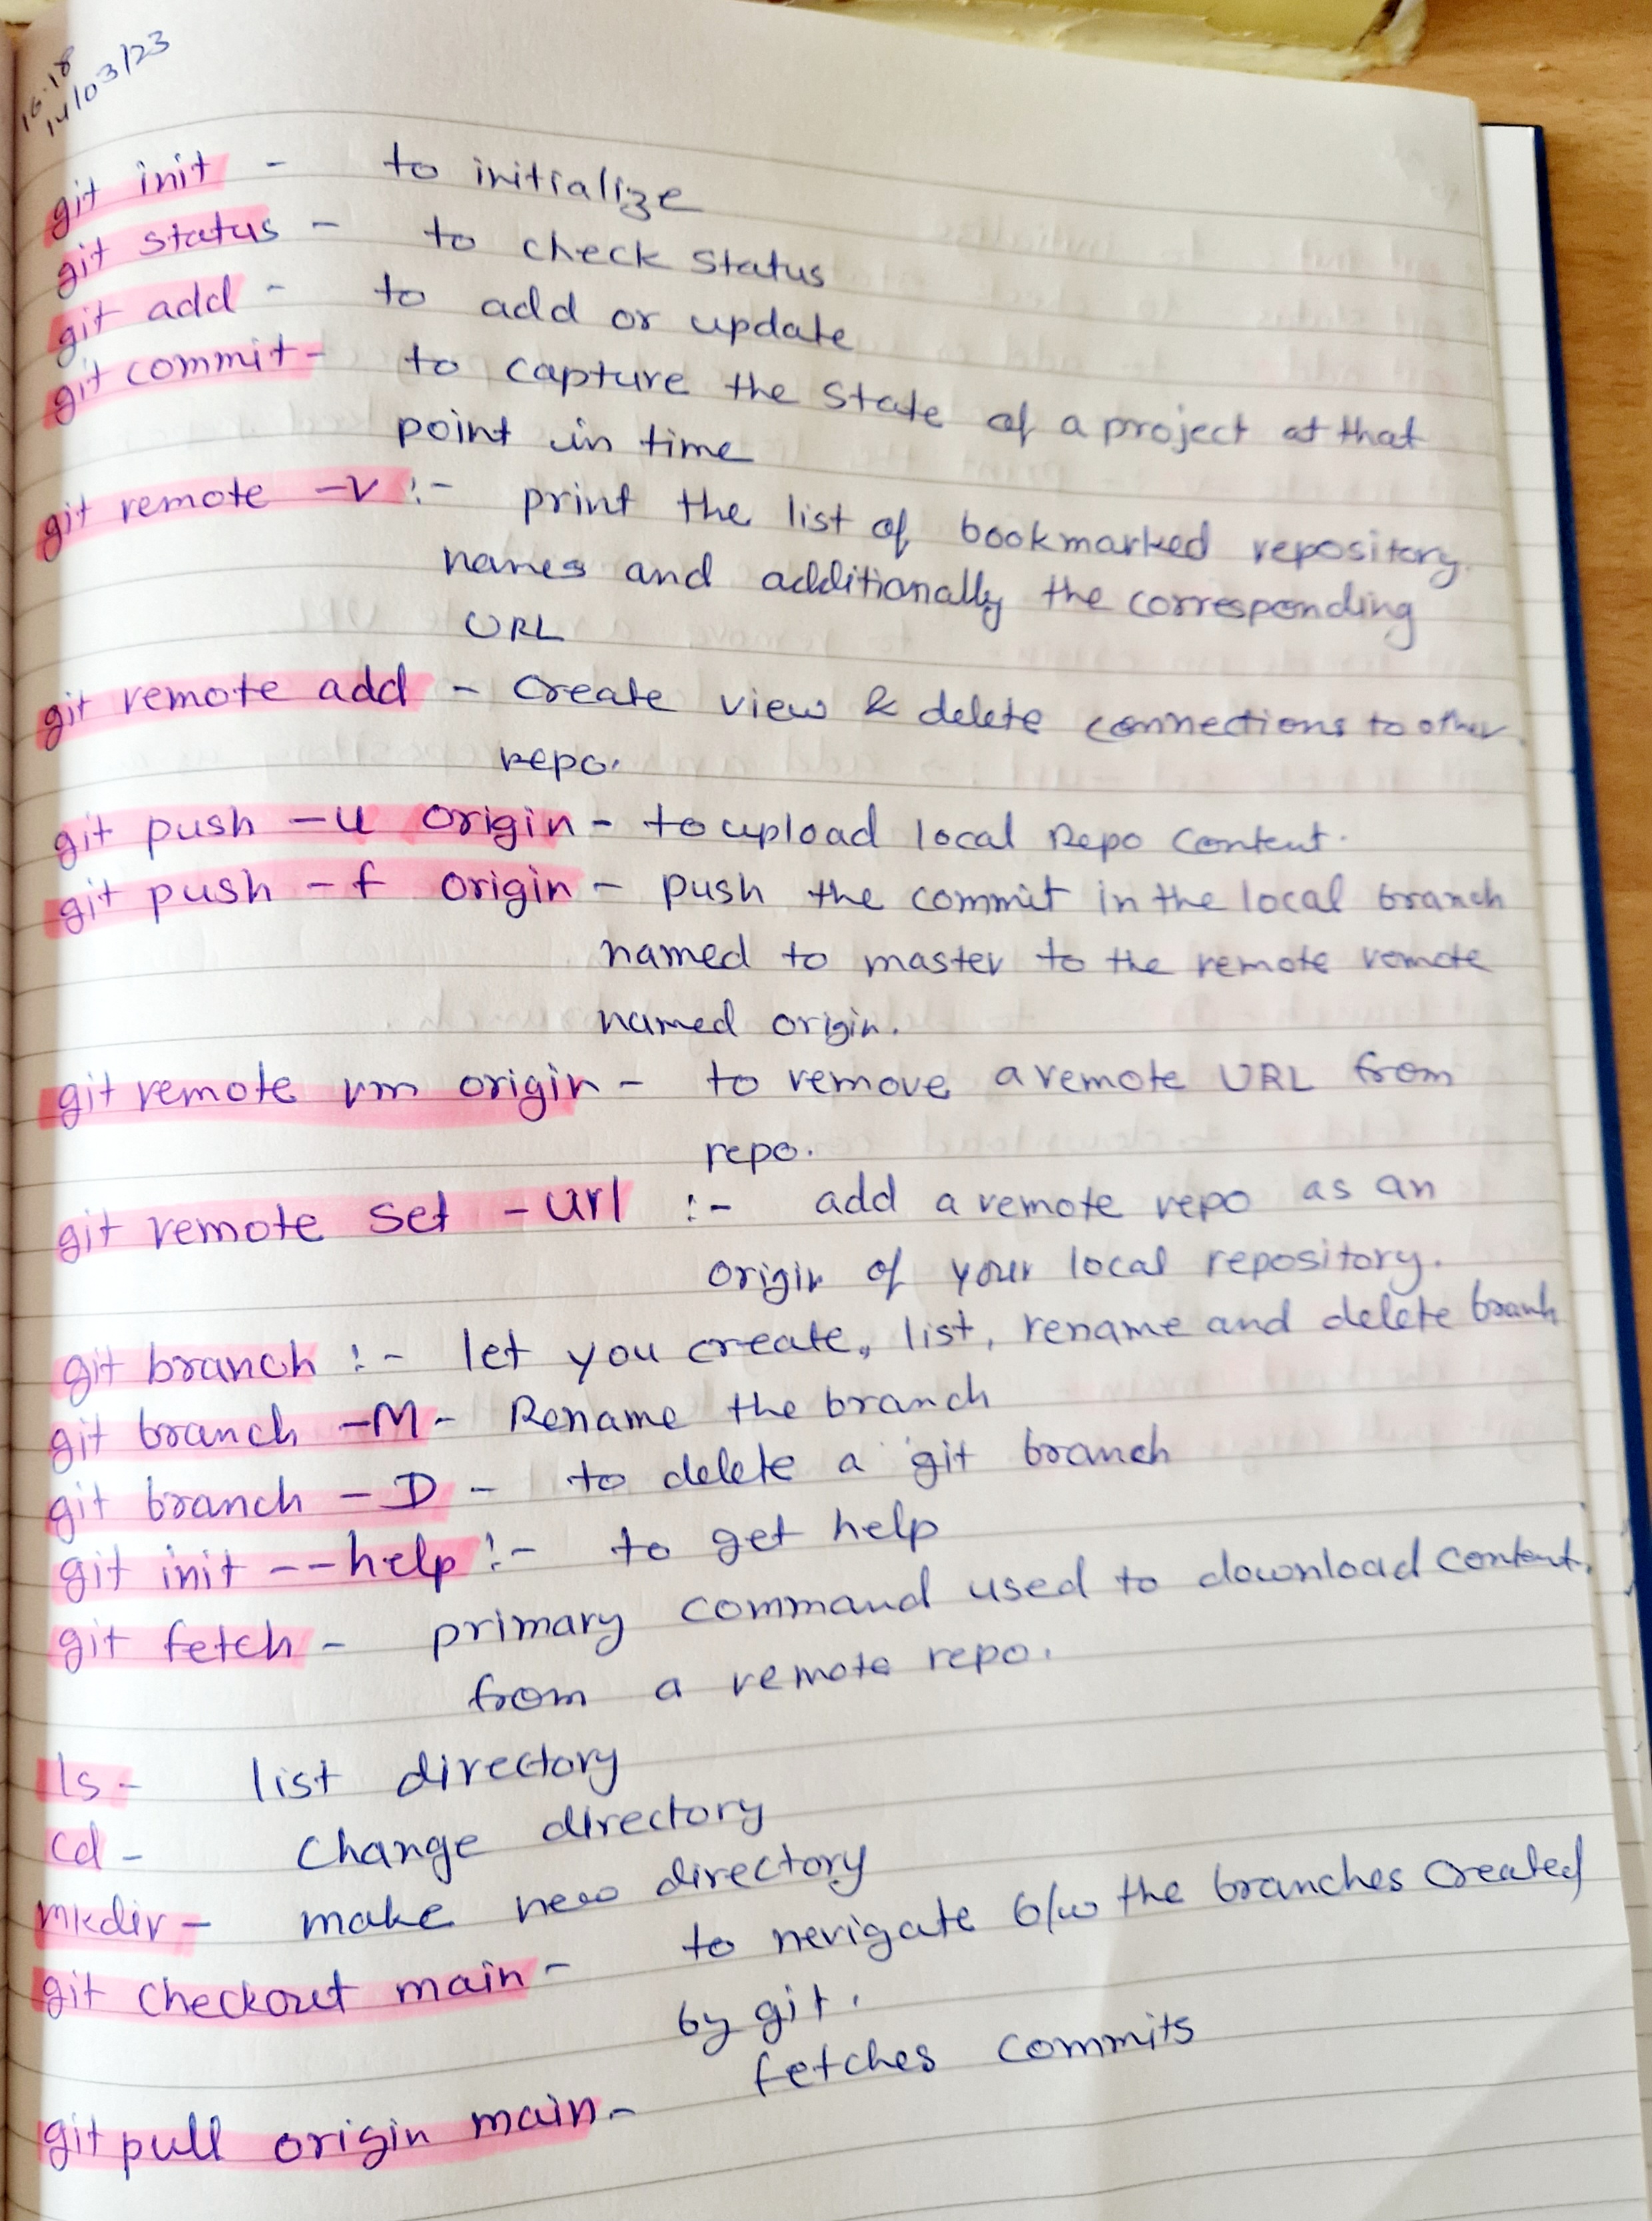 16.18
14/03/23
git init - to initialize
git status - to check status
git add - to add or update
git commit - to capture the state of a project at that
point in time
git remote -v :- print the list of bookmarked repository
names and additionally the corresponding
URL
git remote add - create view & delete connections to other
repo.
git push -u origin - to upload local Repo content.
git push -f origin - push the commit in the local branch
named to master to the remote remote
named origin.
git remote rm origin - to remove a remote URL from
repo.
git remote set -url :- add a remote repo as an
origin of your local repository.
git branch :- let you create, list, rename and delete branh
git branch -M - Rename the branch
git branch -D - to delete a git branch
git init --help :- to get help
git fetch - primary command used to download content.
from a remote repo.
ls - list directory
cd - change directory
mkdir - make new directory
git checkout main - to nevigate b/w the branches created
by git.
git pull origin main - fetches commits